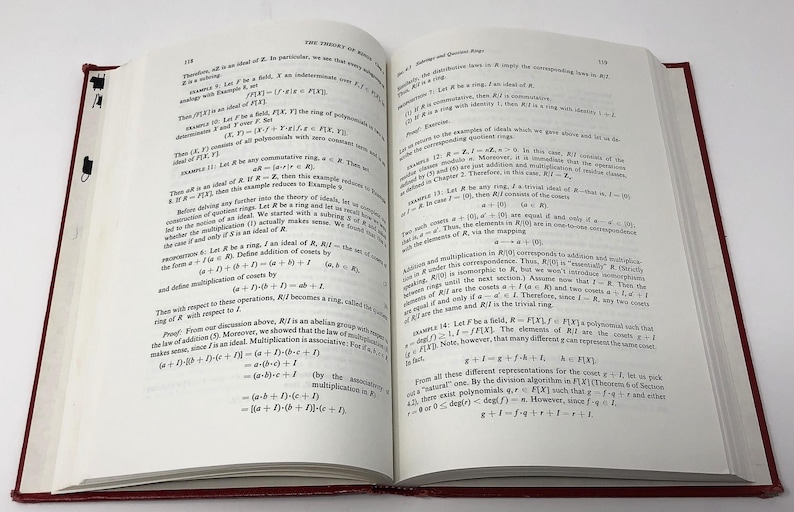 118
THE THEORY OF RINGS
Therefore, nZ is an ideal of Z. In particular, we see that every subgroup
Z is a subring.
EXAMPLE 9: Let F be a field, X an indeterminate over F, f ∈ F[X]
analogy with Example 8, set
fF[X] = {f·g | g ∈ F[X]}.
Then fF[X] is an ideal of F[X].
EXAMPLE 10: Let F be a field, F[X, Y] the ring of polynomials in two
determinates X and Y over F. Set
(X, Y) = {X·f + Y·g | f, g ∈ F[X, Y]}.
Then (X, Y) consists of all polynomials with zero constant term and is an
ideal of F[X, Y].
EXAMPLE 11: Let R be any commutative ring, a ∈ R. Then set
aR = {a·r | r ∈ R}.
Then aR is an ideal of R. If R = Z, then this example reduces to Example
8. If R = F[X], then this example reduces to Example 9.
Before delving any further into the theory of ideals, let us complete the
construction of quotient rings. Let R be a ring and let us recall how we
led to the notion of an ideal. We started with a subring S of R and
whether the multiplication (1) actually makes sense. We found that this
the case if and only if S is an ideal of R.
PROPOSITION 6: Let R be a ring, I an ideal of R, R/I = the set of cosets of
the form a + I (a ∈ R). Define addition of cosets by
(a + I) + (b + I) = (a + b) + I (a, b ∈ R),
and define multiplication of cosets by
(a + I)·(b + I) = ab + I.
Then with respect to these operations, R/I becomes a ring, called the quotient
ring of R with respect to I.
Proof: From our discussion above, R/I is an abelian group with respect to
the law of addition (5). Moreover, we showed that the law of multiplication
makes sense, since I is an ideal. Multiplication is associative: For if a, b, c ∈
(a + I)·[(b + I)·(c + I)] = (a + I)·(b·c + I)
= a·(b·c) + I
= (a·b)·c + I (by the associativity of
multiplication in R)
= (a·b + I)·(c + I)
= [(a + I)·(b + I)]·(c + I).
Sec. 4.3 Subrings and Quotient Rings
119
Similarly, the distributive laws in R imply the corresponding laws in R/I.
Thus, R/I is a ring.
PROPOSITION 7: Let R be a ring, I an ideal of R.
(1) If R is commutative, then R/I is commutative.
(2) If R is a ring with identity 1, then R/I is a ring with identity 1 + I.
Proof: Exercise.
Let us return to the examples of ideals which we gave above and let us de-
scribe the corresponding quotient rings.
EXAMPLE 12: R = Z, I = nZ, n > 0. In this case, R/I consists of the
residue classes modulo n. Moreover, it is immediate that the operations
defined by (5) and (6) are just addition and multiplication of residue classes,
as defined in Chapter 2. Therefore, in this case, R/I = Zₙ.
EXAMPLE 13: Let R be any ring, I a trivial ideal of R—that is, I = {0}
or I = R. In case I = {0}, then R/I consists of the cosets
a + {0} (a ∈ R).
Two such cosets a + {0}, a′ + {0} are equal if and only if a − a′ ∈ {0};
that is, a = a′. Thus, the elements in R/{0} are in one-to-one correspondence
with the elements of R, via the mapping
a ⟶ a + {0}.
Addition and multiplication in R/{0} corresponds to addition and multiplica-
tion in R under this correspondence. Thus, R/{0} is “essentially” R. (Strictly
speaking, R/{0} is isomorphic to R, but we won't introduce isomorphisms
between rings until the next section.) Assume now that I = R. Then the
elements of R/I are the cosets a + I (a ∈ R) and two cosets a + I, a′ + I
are equal if and only if a − a′ ∈ I. Therefore, since I = R, any two cosets
of R/I are the same and R/I is the trivial ring.
EXAMPLE 14: Let F be a field, R = F[X], f ∈ F[X] a polynomial such that
n = deg(f) ≥ 1, I = fF[X]. The elements of R/I are the cosets g + I
(g ∈ F[X]). Note, however, that many different g can represent the same coset.
In fact,
g + I = g + f·h + I, h ∈ F[X].
From all these different representations for the coset g + I, let us pick
out a “natural” one. By the division algorithm in F[X] (Theorem 6 of Section
4.2), there exist polynomials q, r ∈ F[X] such that g = f·q + r and either
r = 0 or 0 ≤ deg(r) < deg(f) = n. However, since f·q ∈ I,
g + I = f·q + r + I = r + I.